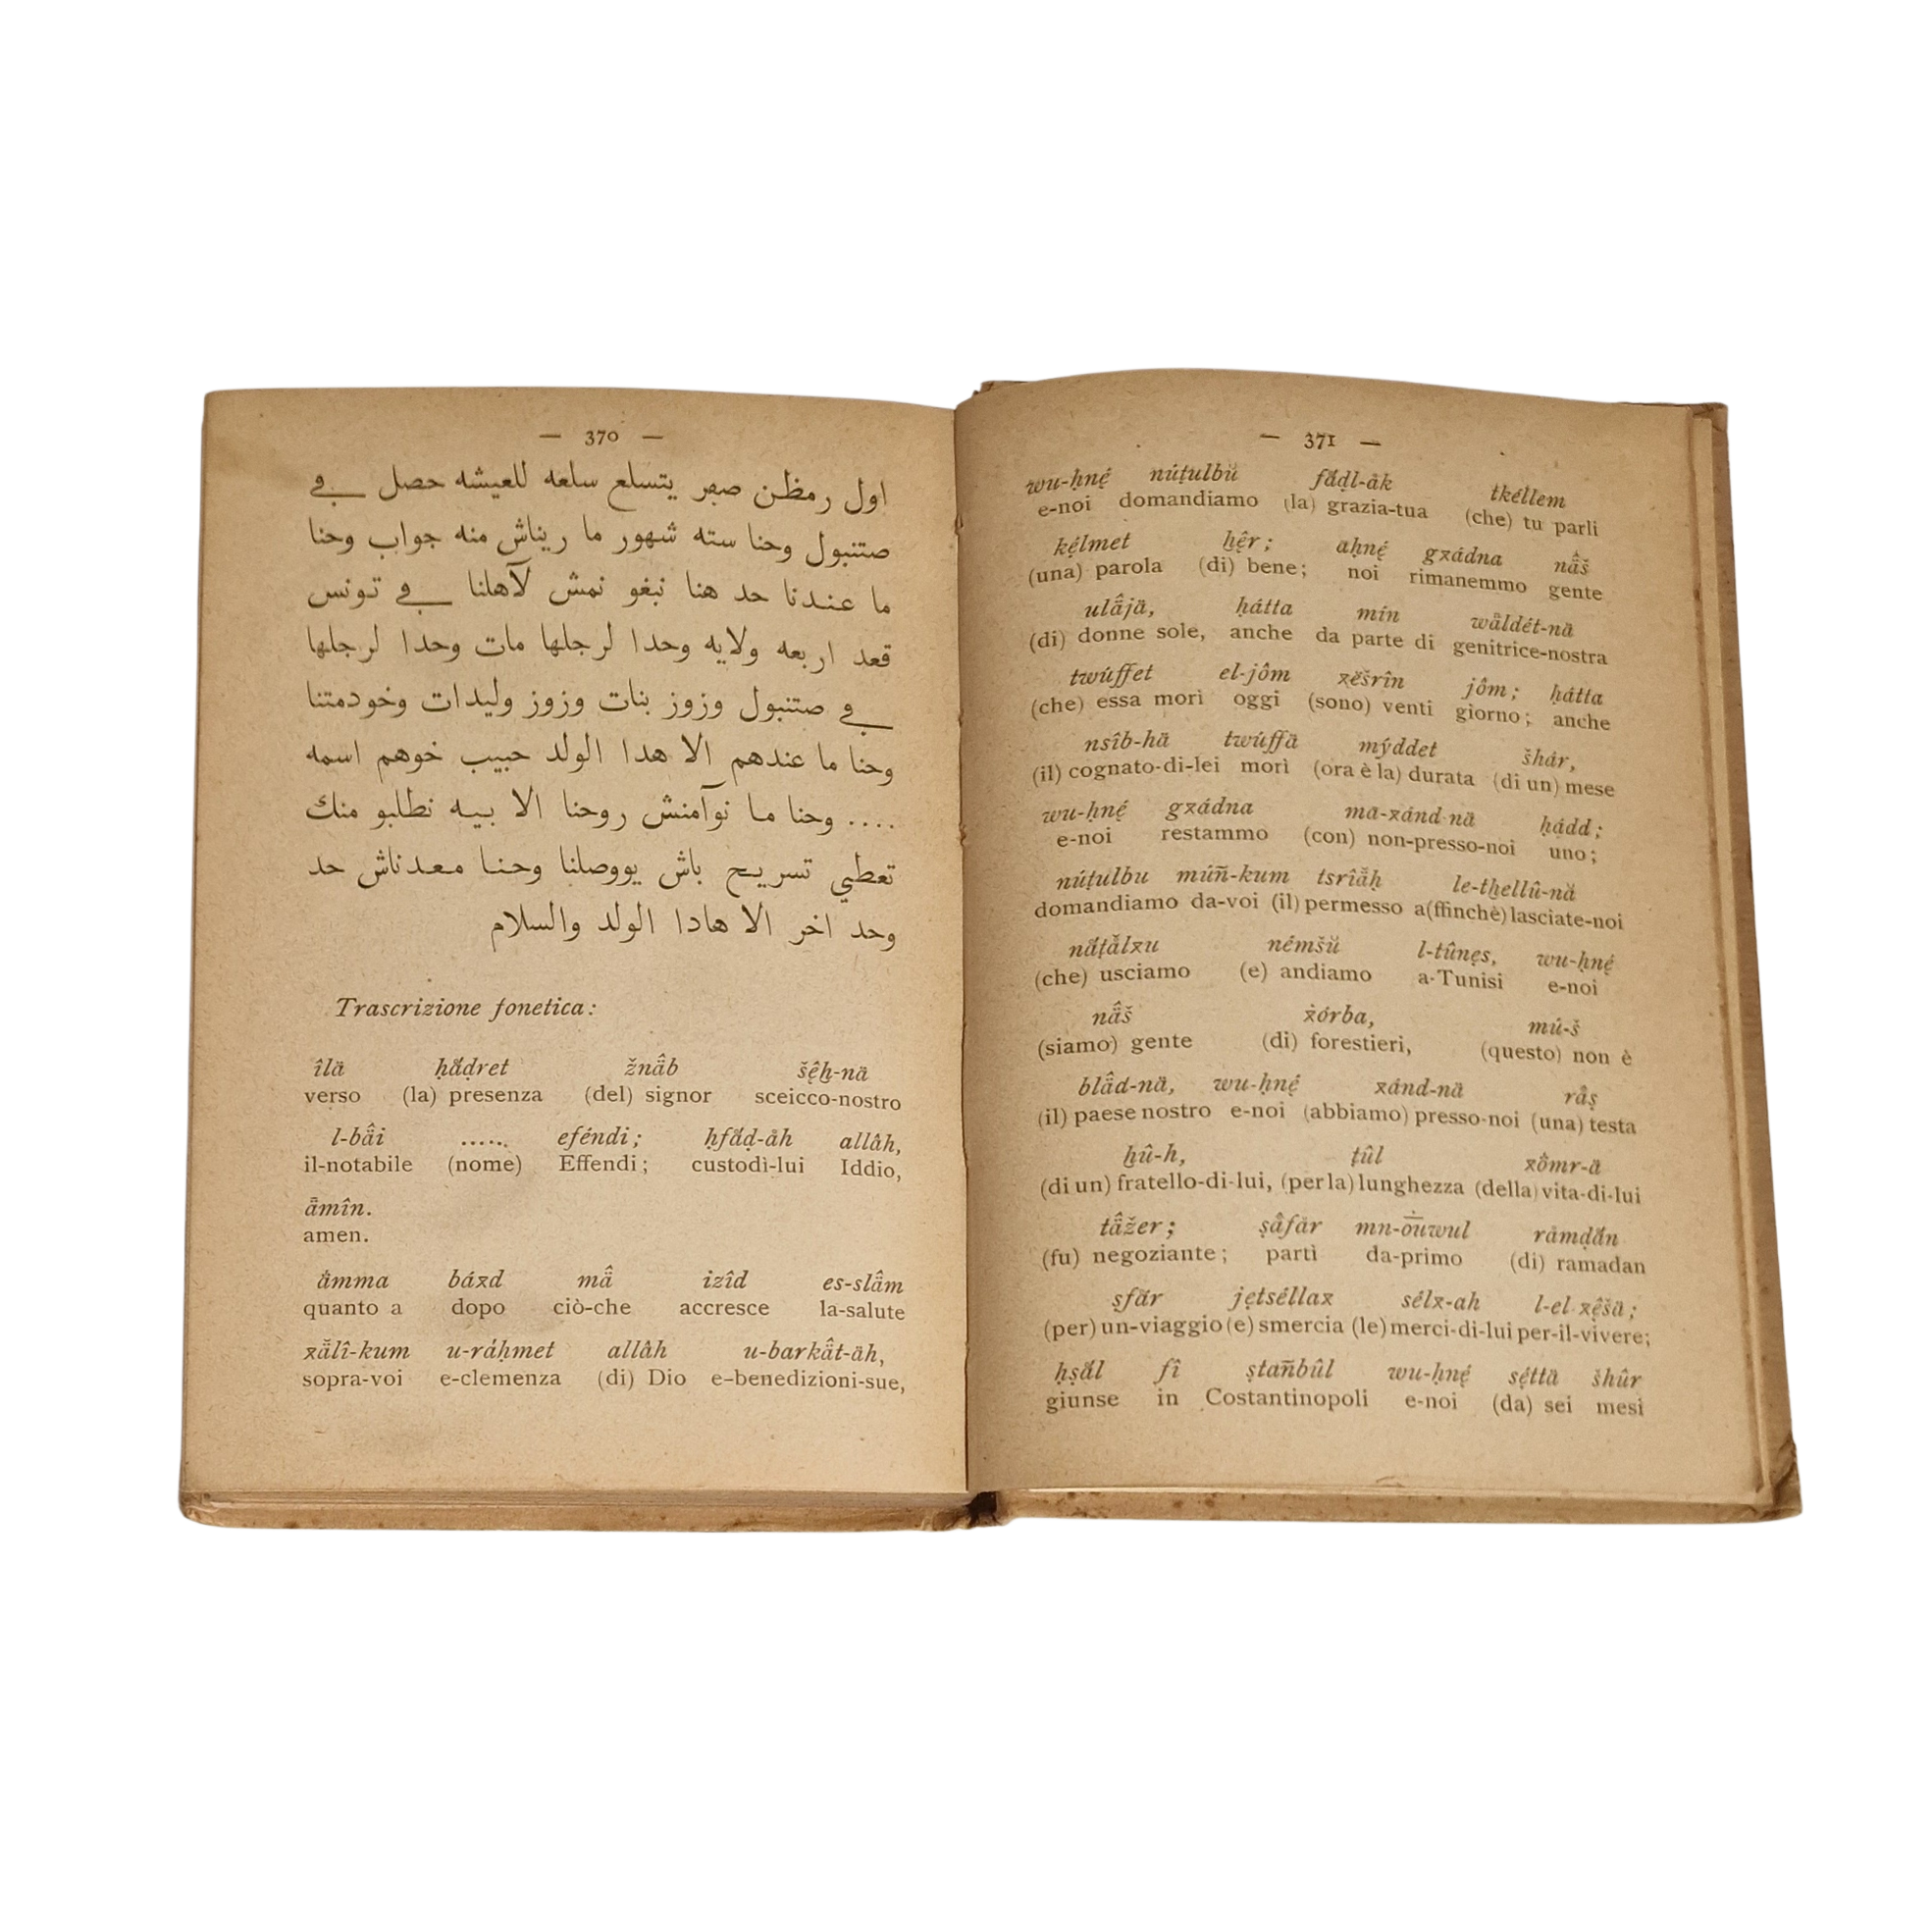 — 370 —
اول رمظن صفر يتسلع سلعه للعيشه حصل في
صتنبول وحنا سته شهور ما ريناش منه جواب وحنا
ما عندنا حد هنا نبغو نمش لآهلنا في تونس
قعد اربعه ولايه وحدا لرجلها مات وحدا لرجلها
في صتنبول وزوز بنات وزوز وليدات وخودمتنا
وحنا ما عندهم الا هدا الولد حبيب خوهم اسمه
.... وحنا ما نوآمنش روحنا الا بيه نطلبو منك
تعطي تسريح باش يووصلنا وحنا معدناش حد
وحد اخر الا هادا الولد والسلام
Trascrizione fonetica:
îlä ḥä́ḍret žnä̂b šệḫ-nä
verso (la) presenza (del) signor sceicco-nostro
l-bä̂i ...... eféndi; ḥfä́ḍ-åh allâh,
il-notabile (nome) Effendi; custodì-lui Iddio,
ä̂mîn.
amen.
ämma báꭓd mä̂ izîd es-slä̂m
quanto a dopo ciò-che accresce la-salute
ꭓä̆lî-kum u-ráḥmet allâh u-barkä̂t-äh,
sopra-voi e-clemenza (di) Dio e-benedizioni-sue,
— 371 —
wu-ḥnẹ́ núṭulbŭ fä́ḍl-åk tkéllem
e-noi domandiamo (la) grazia-tua (che) tu parli
kẹ́lmet ḫệr; aḥnẹ́ gꭓádna nä̂š
(una) parola (di) bene; noi rimanemmo gente
ulä̂jä, ḥátta mín wåldét-nä
(di) donne sole, anche da parte di genitrice-nostra
twúffet el-jôm ꭓĕšrîn jôm; ḥátta
(che) essa morì oggi (sono) venti giorno; anche
nsîb-hä twúffä mýddet šhár,
(il) cognato-di-lei morì (ora è la) durata (di un) mese
wu-ḥnẹ́ gꭓádna mä-ꭓánd-nä ḥádd;
e-noi restammo (con) non-presso-noi uno;
núṭulbu múñ-kum tsrîä̆ḥ le-tḫellû-nä
domandiamo da-voi (il) permesso a(ffinchè) lasciate-noi
nä́ṭä̆lꭓu némšŭ l-tûnẹs, wu-ḥnẹ́
(che) usciamo (e) andiamo a-Tunisi e-noi
nä̂š ꭓ̇órba, mú-š
(siamo) gente (di) forestieri, (questo) non è
blä̂d-nä, wu-ḥnẹ́ ꭓánd-nä rå̂ṣ
(il) paese nostro e-noi (abbiamo) presso-noi (una) testa
ḫû-h, ṭûl ꭓômr-ä
(di un) fratello-di-lui, (per la) lunghezza (della) vita-di-lui
tä̂žer; ṣå̂fär mn-ouwul råmḍä́n
(fu) negoziante; partì da-primo (di) ramadan
ṣfä́r jẹtséllaꭓ sélꭓ-ah l-el-ꭓệšä;
(per) un-viaggio (e) smercia (le) merci-di-lui per-il-vivere;
ḥṣä́l fî ṣtañbûl wu-ḥnẹ́ sẹ́ttä šhûr
giunse in Costantinopoli e-noi (da) sei mesi